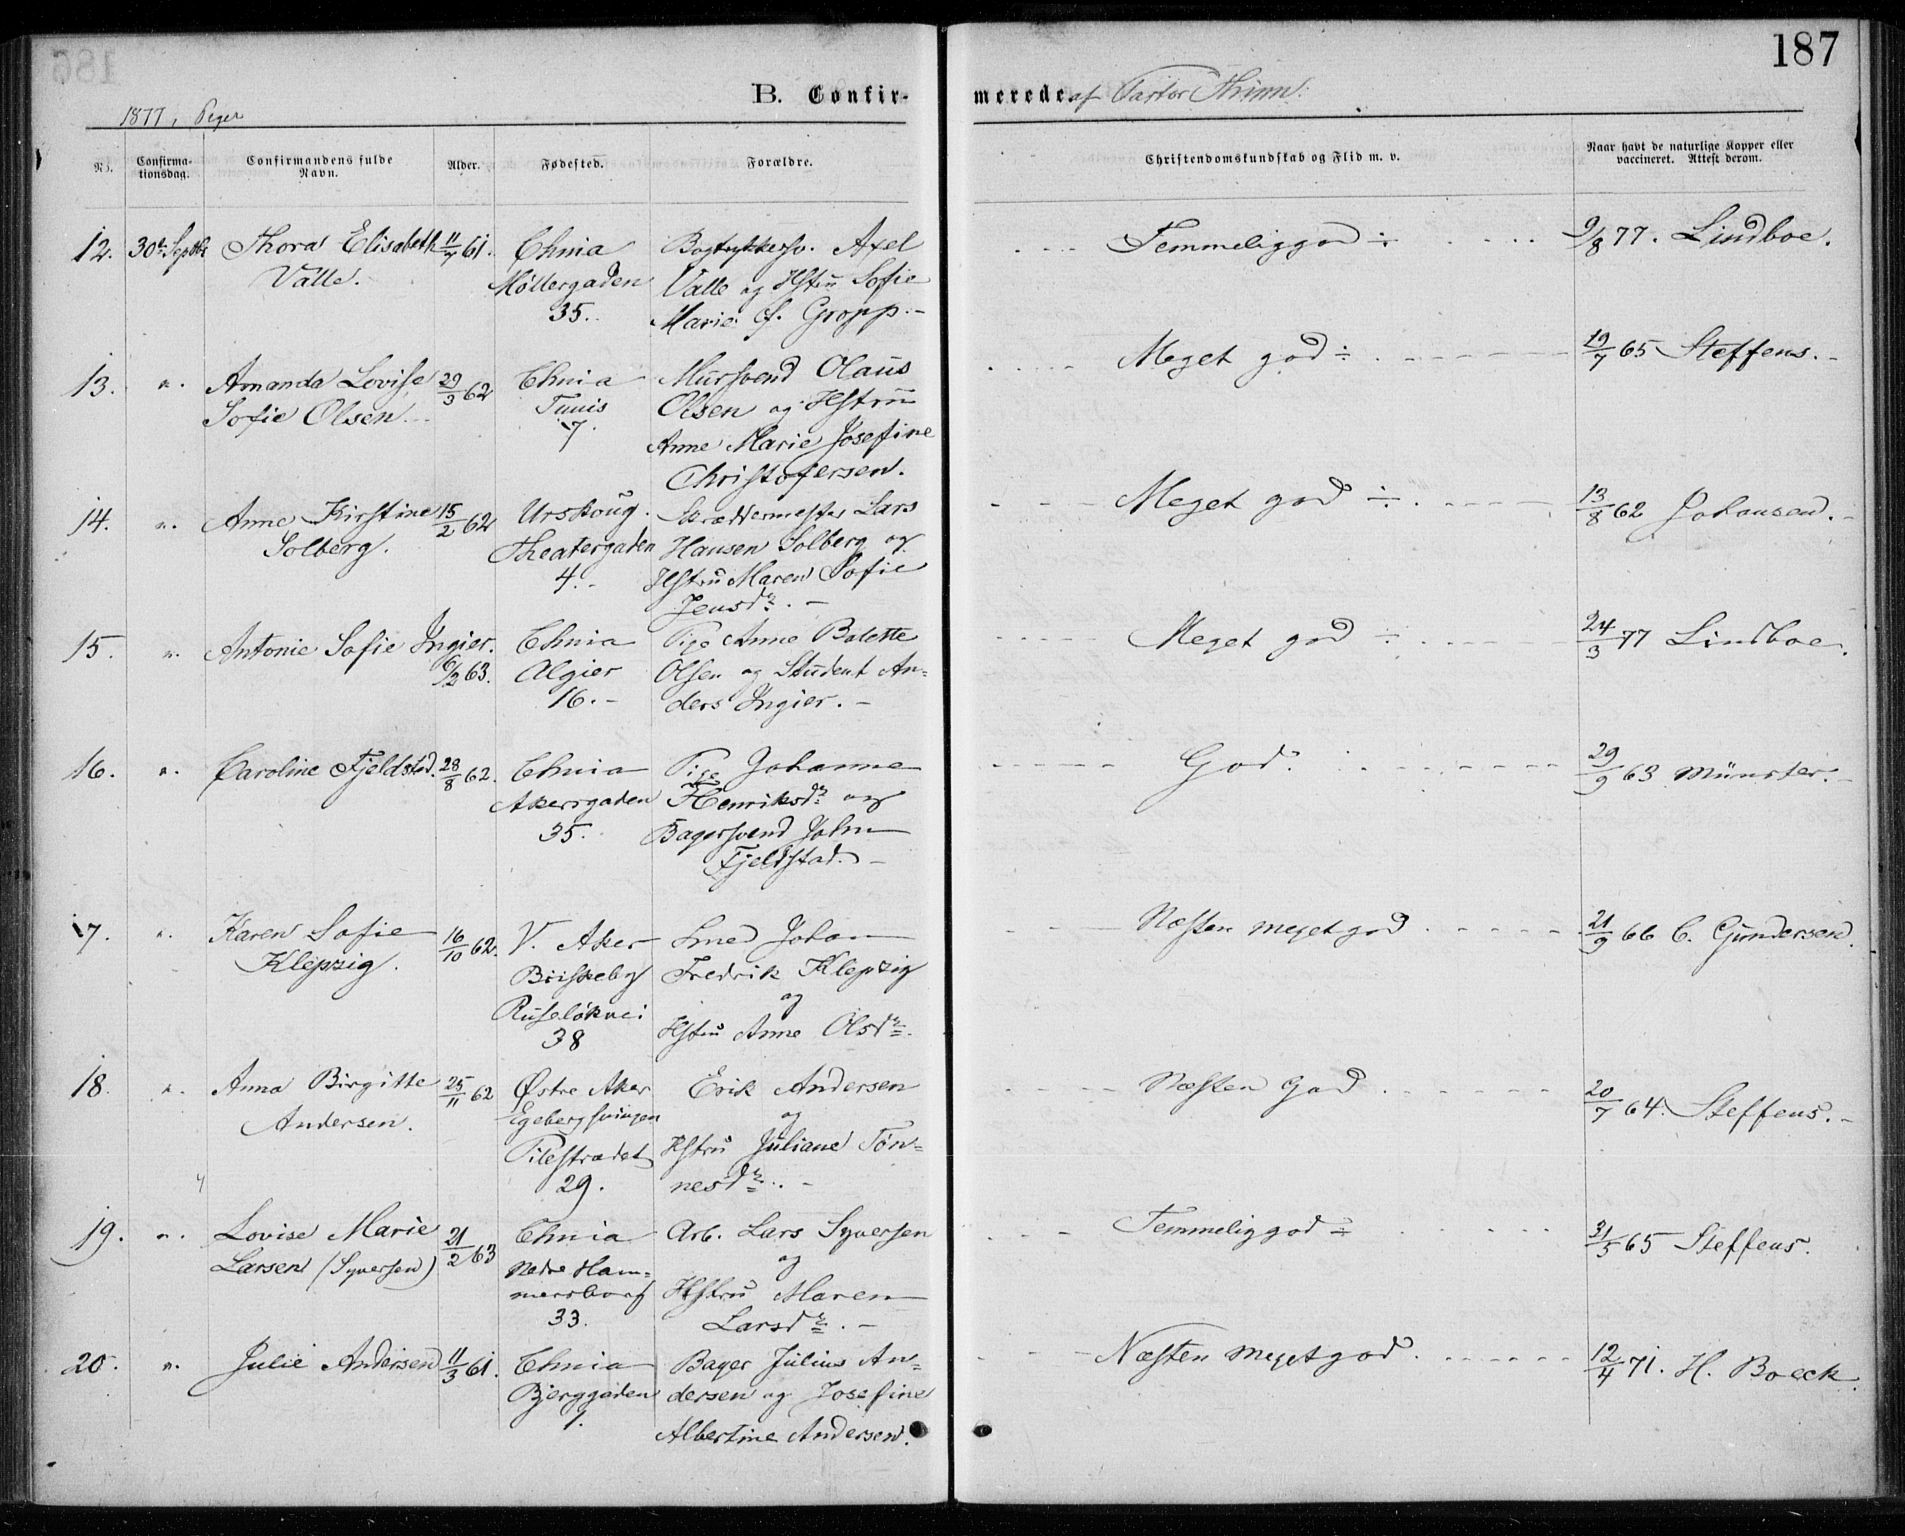 187
B. Confirmerede af Pastor Thinn:
1877, Piger
No. Confirmationsdag. Confirmandens fulde Navn. Alder. Fødested. Forældre. Christendomskundskab og Flid m. v. Naar havt de naturlige Kopper eller vaccineret. Attest derom.
12. 30te Septbr Thora Elisabeth 11/7 61. Chnia Bogtrykkersv. Axel Temmelig god ÷ 9/8 77. Lindboe.
Valle. Møllergaden Valle og Hstru Sofie
35. Marie f. Gropp. -
13. ". Amanda Lovise 29/3 62 Chnia Mursvend Olaus Meget god ÷ 19/7 65 Steffens. -
Sofie Olsen. Tunis Olsen og Hstru
7. Anne Marie Josefine
Christofersen.
14. ". Anne Kirstine 15/2 62 Urskoug. Skræddermester Lars Meget god ÷ 13/8 62 Johansen. -
Solberg. Theatergaden Hansen Solberg og
4. - Hstru Maren Sofie
Jensdr. -
15. ". Antonie Sofie Ingier. Chnia Pige Anne Bolette Meget god ÷ 24/3 77 Lindboe.
6/2 63. Algier Olsen og Student An=
16. - ders Ingier. -
16. ". Caroline Fjeldstad. 28/8 62. Chnia Pige Johanne God. 29/9 63 Münster. -
Akersgaden Henriksdr og
35. Bagersvend John
Fjeldstad. -
17. ". Karen Sofie 16/10 62. V. Aker Smed Johan Næsten meget god 21/9 66 C. Gundersen.
Klepzig. Briskeby Fredrik Klepzig
Ruseløkvei og
38 Hstru Anne Olsdr.
18. ". Anna Birgitte 25/11 62 Østre Aker Erik Andersen Næsten God 20/7 64. Steffens. -
Andersen. Egebergsvingen og
Pilestrædet Hstru Juliane Tøn=
29. nesdr. -
19. ". Lovise Marie 21/2 63 Chnia Arb. Lars Syversen Temmelig god ÷ 31/5 65 Steffens.
Larsen (Syversen) Nedre Ham= og
mersborg Hstru Maren
33. Larsdr. -
20. ". Julie Andersen 11/3 61. Chnia Bager Julius An= Næsten meget god 12/4 71. H. Boeck.
Bjerggaden dersen og Josefine
1. Albertine Andersen.